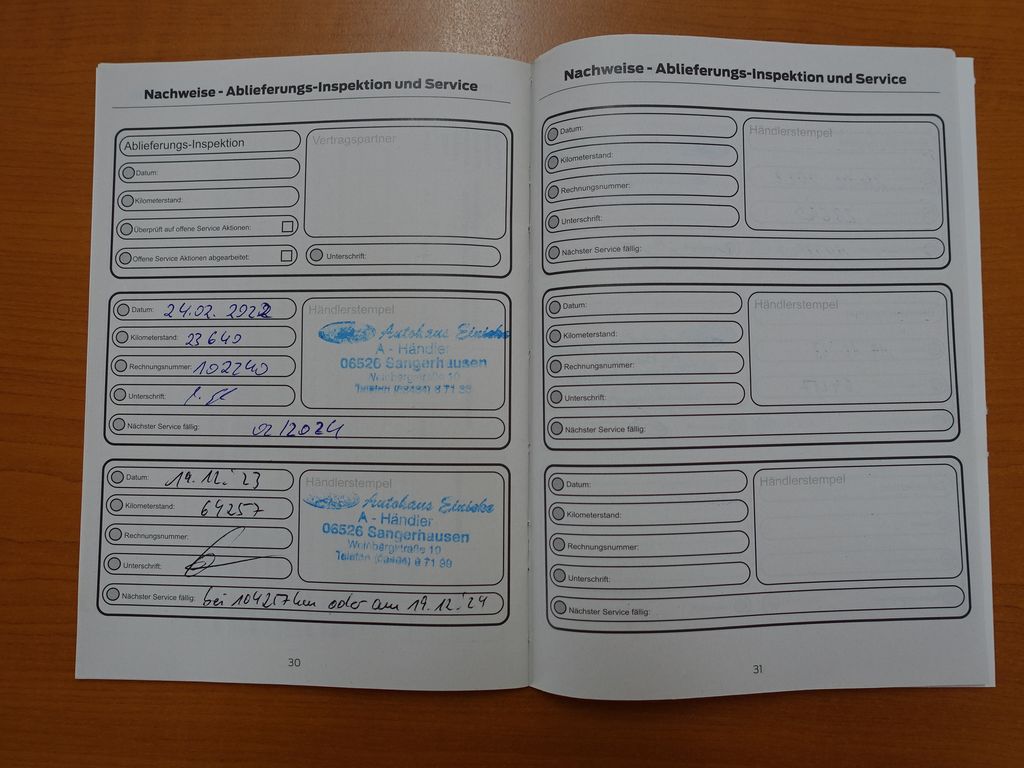 Nachweise - Ablieferungs-Inspektion und Service
Ablieferungs-Inspektion
Vertragspartner
Datum:
Kilometerstand:
Überprüft auf offene Service Aktionen:
Offene Service Aktionen abgearbeitet:
Unterschrift:
Datum: 24.02. 2022
Händlerstempel
Kilometerstand: 23640
Rechnungsnummer: 102240
Unterschrift:
Autohaus Einicke
A - Händler
06526 Sangerhausen
Weinbergstraße 10
Telefon (03464) 8 71 99
Nächster Service fällig: 02/2024
Datum: 19.12.'23
Händlerstempel
Kilometerstand: 64257
Rechnungsnummer:
Unterschrift:
Autohaus Einicke
A - Händler
06526 Sangerhausen
Weinbergstraße 10
Telefon (03464) 8 71 99
Nächster Service fällig: bei 104257km oder am 19.12.'24
30
Nachweise - Ablieferungs-Inspektion und Service
Datum:
Händlerstempel
Kilometerstand:
Rechnungsnummer:
Unterschrift:
Nächster Service fällig:
Datum:
Händlerstempel
Kilometerstand:
Rechnungsnummer:
Unterschrift:
Nächster Service fällig:
Datum:
Händlerstempel
Kilometerstand:
Rechnungsnummer:
Unterschrift:
Nächster Service fällig:
31